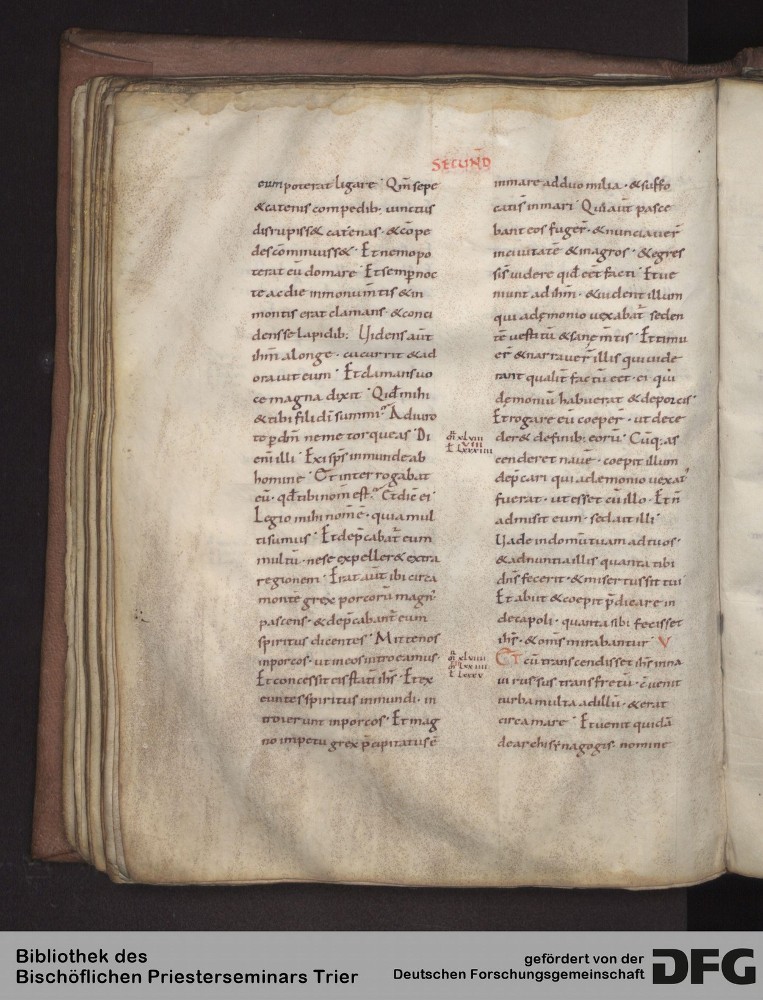 SECUND̄
eum poterat ligare· Qm̄ sepe
& catenis compedib; uinctus
disrupiss& catenas· & cōpe
des cōminuiss&· Et nemo po
terat eū domare· Et semp̄ noc
te ac die in monum̄tis & in
montis erat clamans· & conci
dens se lapidib; Uidens aūt
ihm̄ a longe· cucurrit & ad
orauit eum· Et clamans uo
ce magna dixit· Qid mihi
& tibi fili dī summi· Adiuro
te p̄ dm̄ ne me torqueas· Di
cebat
enī illi· Exi sps̄ inmunde ab
homine· Et interrogabat
eū· qd̄ tibi nom̄ est· Et dic̄ ei
Legio mihi nomē ē· quia mul
ti sumus· Et dep̄cabat̄ eum
multū· ne se expeller& extra
regionem· Erat aūt ibi circa
monte grex porcorū magn'
pascens· & dep̄cabant̄ eum
spiritus dicentes· Mitte nos
in porcos· ut in eos introeamus·
Et concessit eis statī ihs̄· Et ex
euntes spiritus inmundi· in
troierunt in porcos· Et mag
no impetu grex p̄cipitatus ē
xlviii
viii
lxxxiiii
xlviiii
lxxiiii
lxxxv
in mare ad duo milia· & suffo
cati s in mari· Qui aūt pasce
bant eos fuger̄· & nunciauer̄
in ciuitatē & in agros· & egres
si s̄ uidere qid eēt facti· Et ue
niunt ad ihm̄· & uident illum
qui a demonio uexabat̄ seden
tē uestitū & sane m̄tis· Et timu
er̄ & narrauer̄ illis qui uide
rant qualit̄ factū eēt· ei· qui
demoniū habuerat & de porcis·
Et rogare eū coeper̄· ut dece
der& de finib; eorū· Cūq; as
cenderet nauē· coepit illum
dep̄cari qui a demonio uexat'
fuerat· ut esset cū illo· Et n̄
admisit eum· sed ait illi·
Uade in domū tuam ad tuos·
& adnuntia illis quanta tibi
dn̄s fecerit· & misertus sit tui
Et abiit & coepit p̄dicare in
decapoli· quanta sibi fecisset
ihs̄· & om̄s mirabantur· V
ET cū transcendisset ihs̄ in na
ui rursus trans fretū· cuenit
turba multa ad illū· & erat
circa mare· Et uenit quidā
de archisynagogis· nomine
Bibliothek des
Bischöflichen Priesterseminars Trier
gefördert von der
Deutschen Forschungsgemeinschaft
DFG